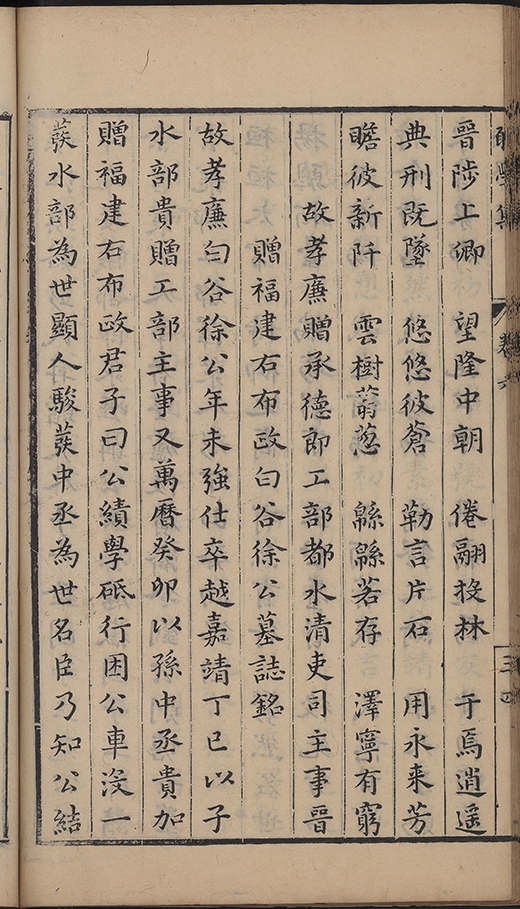 晉陟上卿　望隆中朝　倦翮投林　于焉逍遥
典刑既墜　悠悠彼蒼　勒言片石　用永来芳
瞻彼新阡　雲樹蓊葱　緜緜若存　澤寧有窮
故孝廉贈承德郎工部都水清吏司主事晉
贈福建右布政曰谷徐公墓誌銘
故孝廉曰谷徐公年未強仕卒越嘉靖丁巳以子
水部貴贈工部主事又萬曆癸卯以孫中丞貴加
贈福建右布政君子曰公績學砥行困公車沒一
蕟水部為世顯人駿蕟中丞為世名臣乃知公結